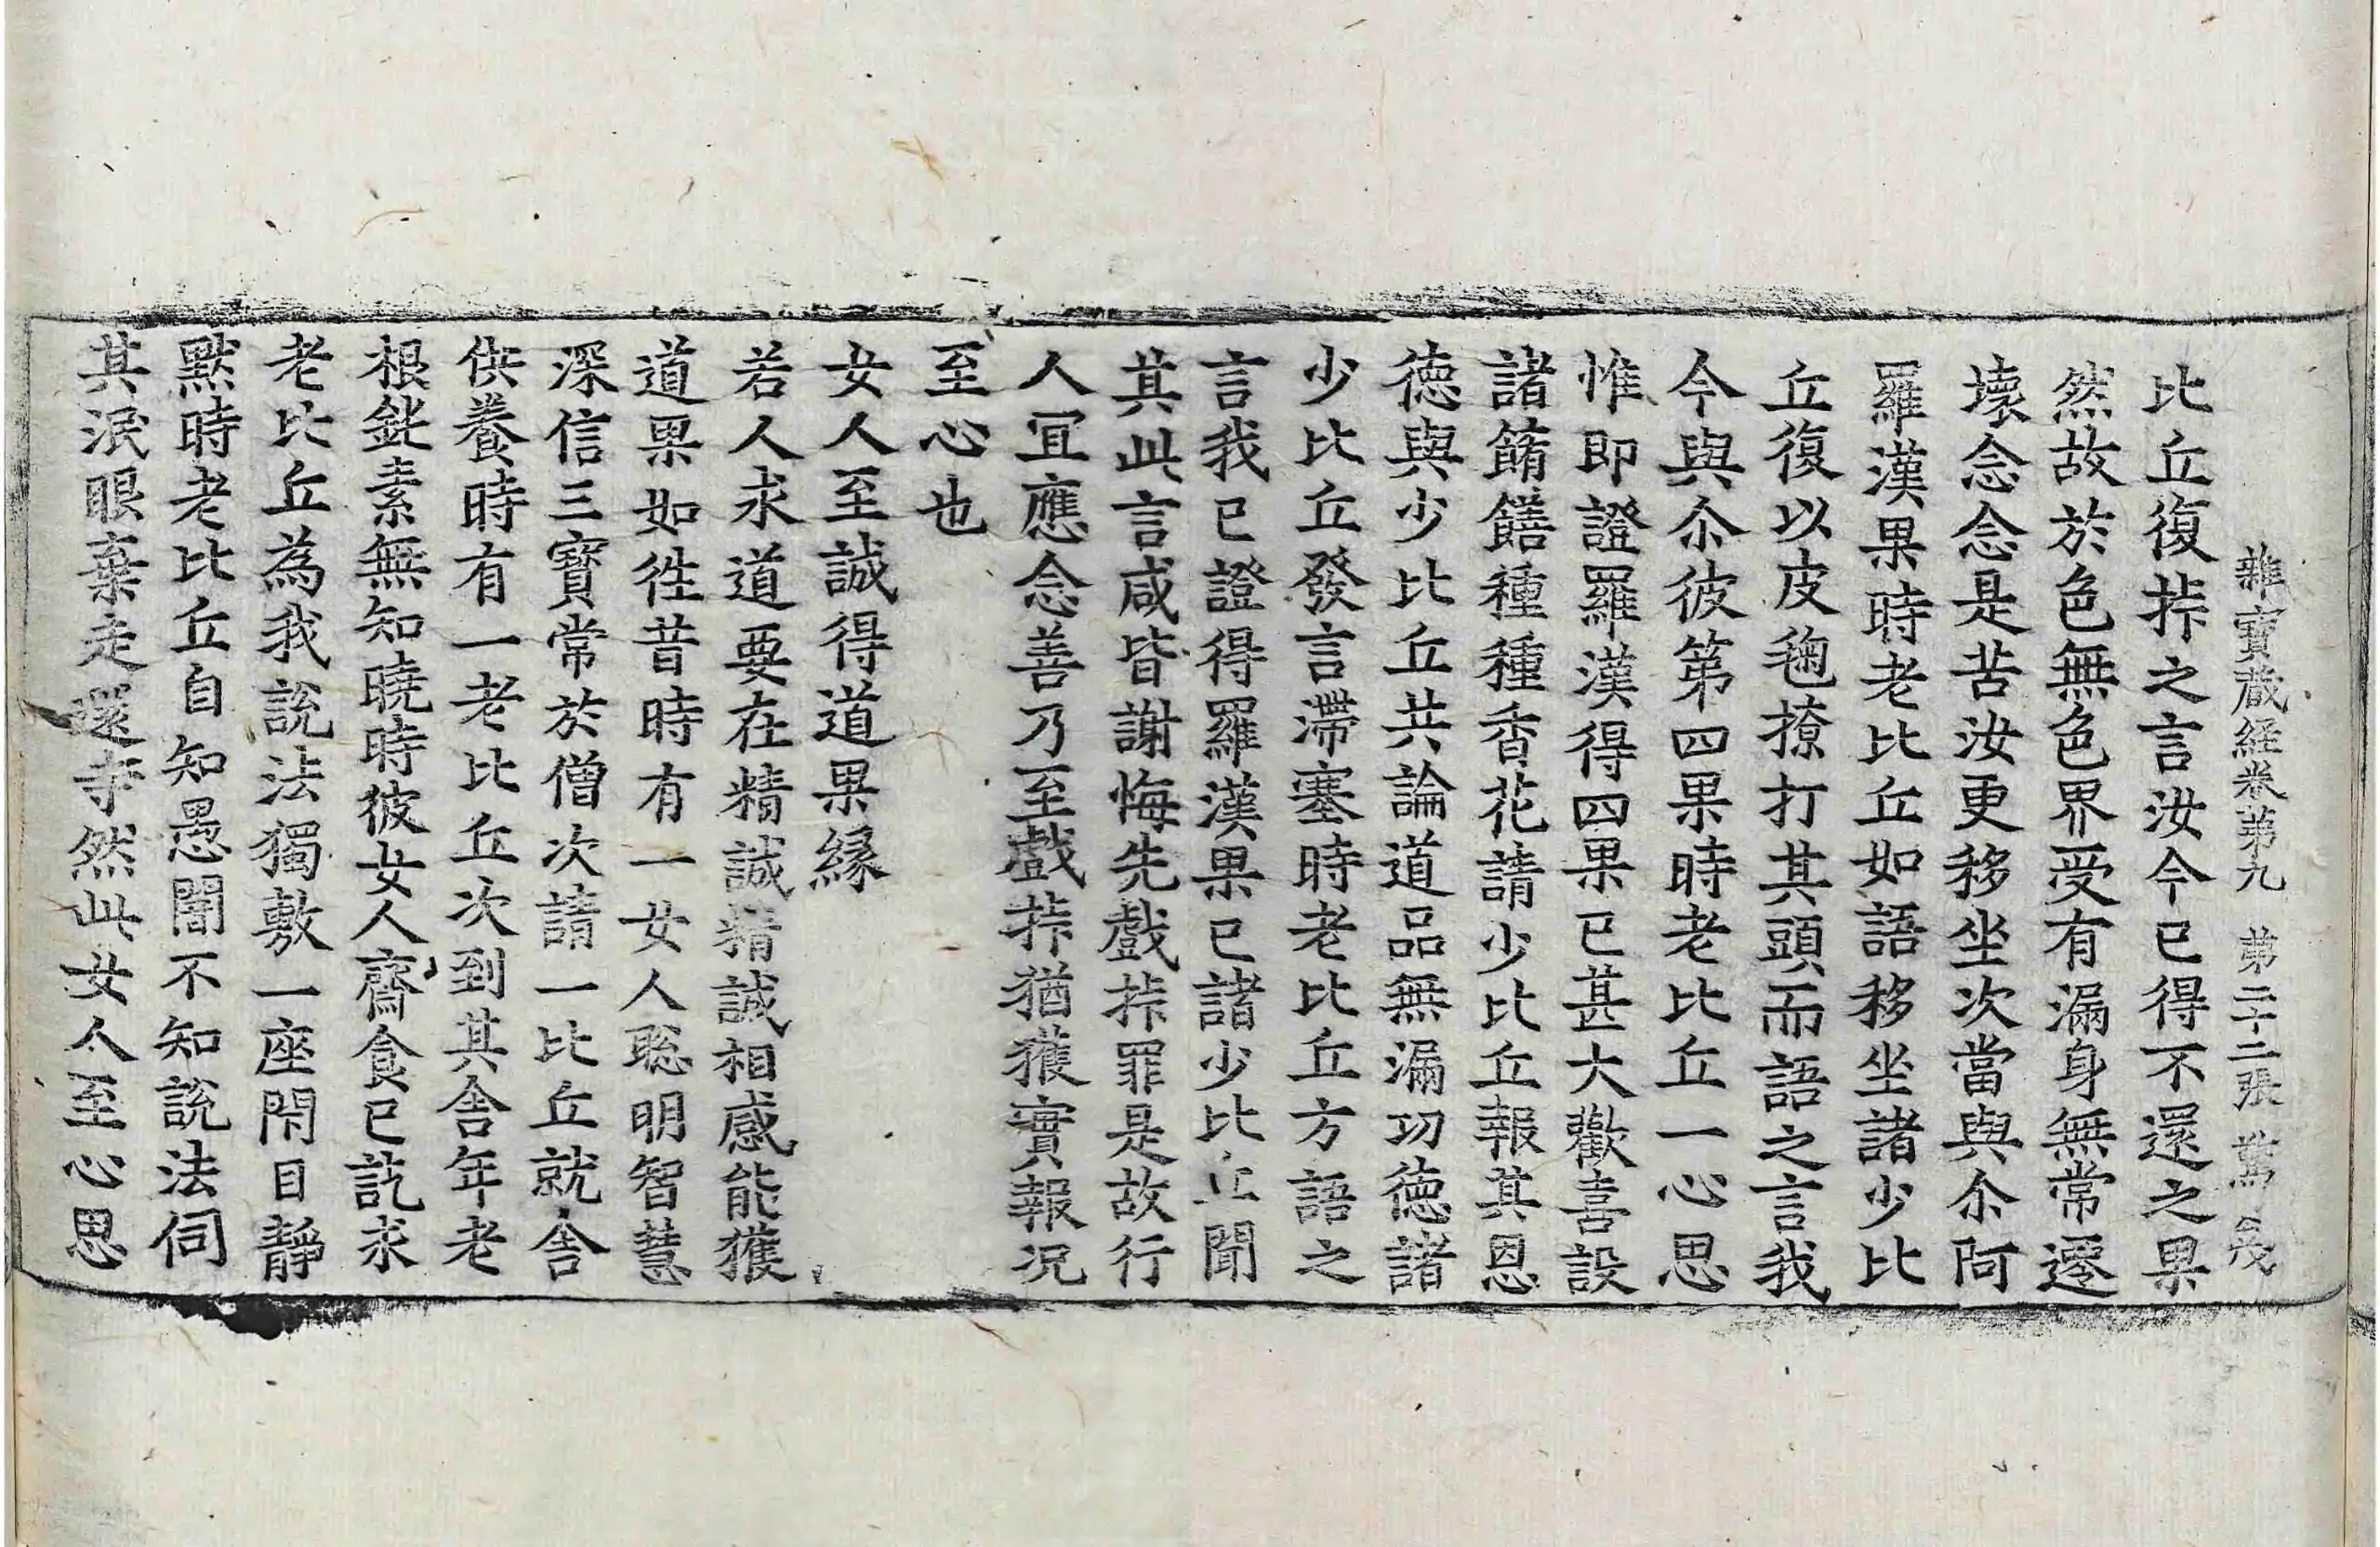 雜寶蔵経卷第九 第二十二張 驚
比丘復捽之言汝今已得不還之果
然故於色無色界受有漏身無常遷
壞念念是苦汝更移坐次當與尒阿
羅漢果時老比丘如語移坐諸少比
丘復以皮毱撩打其頭而語之言我
今與尒彼第四果時老比丘一心思
惟即證羅漢得四果已甚大歡喜設
諸餚饍種種香花請少比丘報其恩
德與少比丘共論道品無漏功德諸
少比丘發言滯塞時老比丘方語之
言我已證得羅漢果已諸少比丘聞
其此言咸皆謝悔先戲捽罪是故行
人宜應念善乃至戲捽猶獲實報况
至心也
女人至誠得道果緣
若人求道要在精誠精誠相感能獲
道果如徃昔時有一女人聡明智慧
深信三寶常於僧次請一比丘就舎
供養時有一老比丘次到其舎年老
根鈍素無知曉時彼女人齋食已訖求
老比丘為我說法獨敷一座閇目靜
默時老比丘自知愚闇不知說法伺
其泯眼棄走還寺然此女人至心思